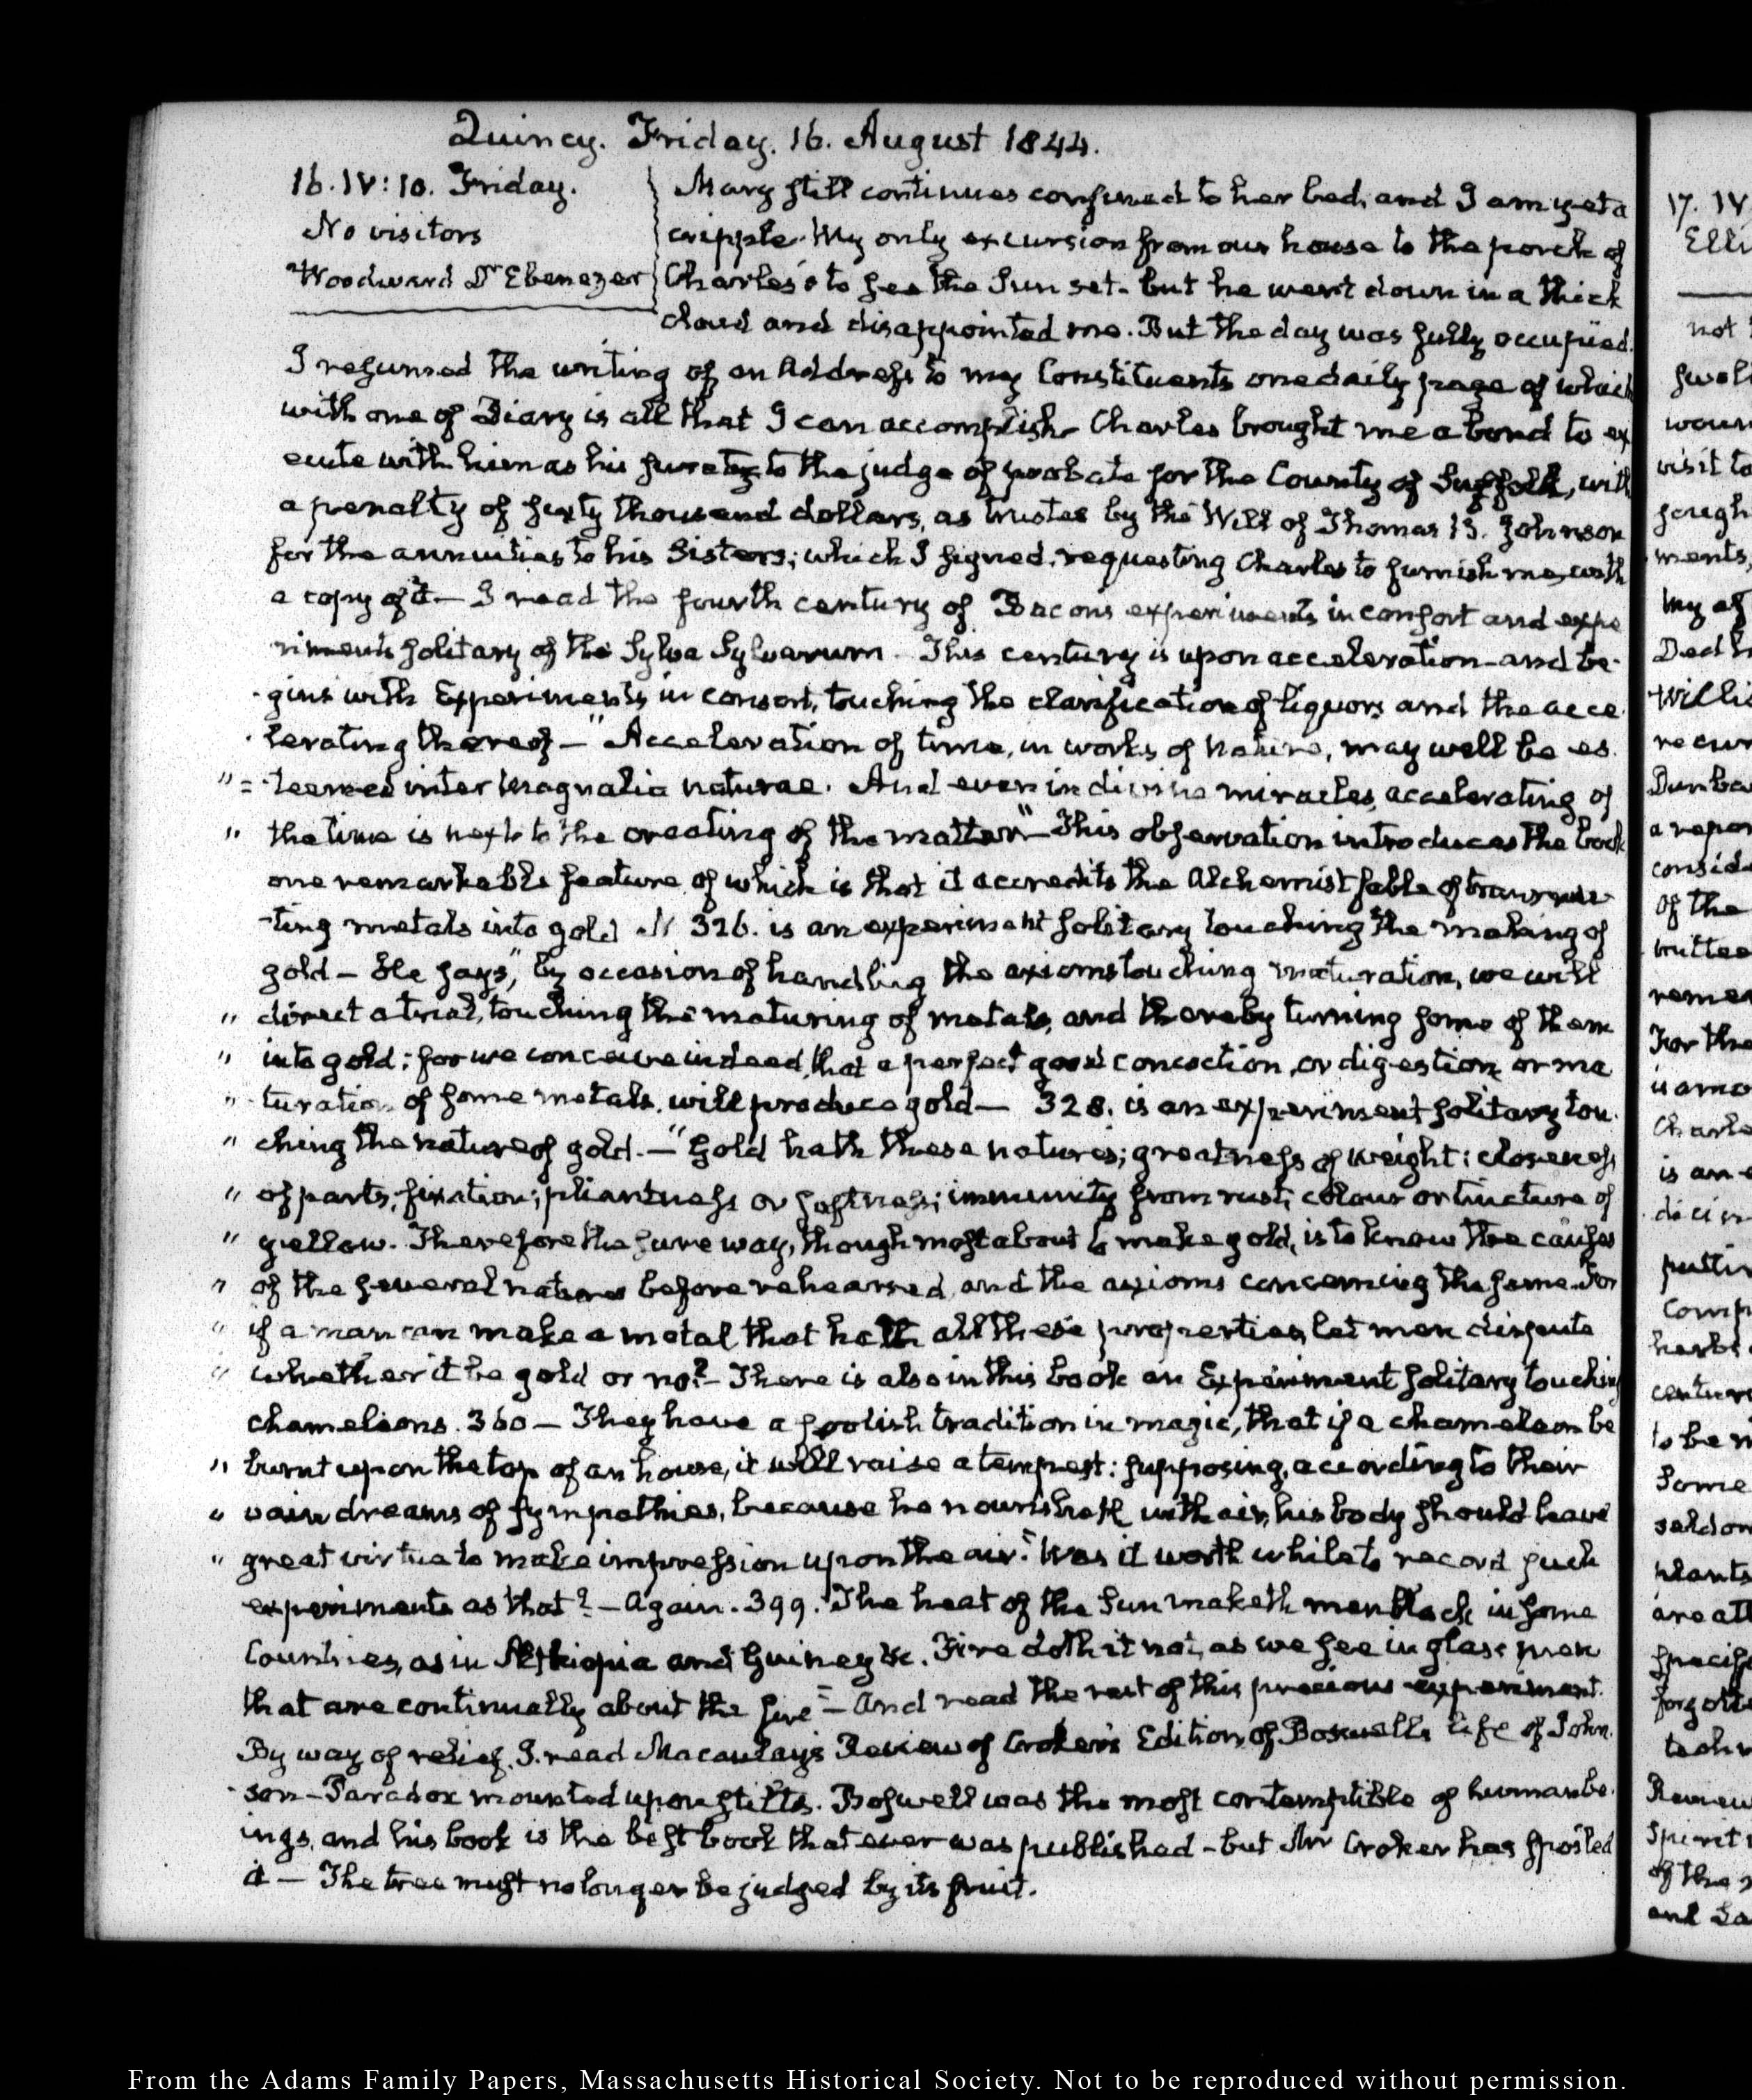 Quincy. Friday. 16. August 1844.
16. IV: 10. Friday.
No visitors
Woodward Dr Ebenezer
Mary still continues confined to her bed, and I am yet a
cripple. My only excursion from our house to the porch of
Charles's to see the Sun set. but he went down in a thick
cloud and disappointed me. But the day was fully occupied.
I resumed the writing of an Address to my Constituents one daily page of which
with one of Diary is all that I can accomplish. Charles brought me a bond to ex
ecute with him as his surety to the judge of probate for the County of Suffolk, with
a penalty of sixty thousand dollars, as trustee by the Will of Thomas B. Johnson
for the annuities to his Sisters; which I signed, requesting Charles to furnish me, with
a copy of it — I read the fourth century of Bacons experiments in consort and expe
riments solitary of the Sylva Sylvarum — This century is upon acceleration — and be-
gins with Experiments in consort, touching the clarification of liquors and the acce
lerating thereof — "Acceleration of time, in works of nature, may well be es-
" = teemed inter magnalia naturae. And even in divine miracles, accelerating of
" the time is next to the creating of the matter" — This observation introduces the book
one remarkable feature of which is that it accredits the Alchemist fable of transmu
-ting metals into gold N 326. is an experiment solitary touching the making of
gold — He says, "by occasion of handling the axioms touching maturation, we will
" direct a trial, touching the maturing of metals, and thereby turning some of them
" into gold: for we conceive indeed, that a perfect good concoction, or digestion or ma
" turation of some metals, will produce gold — 328. is an experiment solitary tou-
" ching the nature of gold. — "Gold hath these natures; greatness of weight: closeness
" of parts, fixation; pliantness or softness; immunity from rust; colour or tincture of
" yellow. Therefore the sure way, though most about to make gold, is to know the causes
" of the several natures before rehearsed, and the axioms concerning the same. For
" if a man can make a metal that hath all these properties, let men dispute
" whether it be gold or no?" — There is also in this book an Experiment solitary touching
chamelions. 360 — They have a foolish tradition in magic, that if a chameleon be
" burnt upon the top of an house, it will raise a tempest: supposing, according to their
" vain dreams of sympathies, because he nourisheth with air, his body should have
" great virtue to make impression upon the air." Was it worth while to record such
experiments as that? — Again. 399. "The heat of the Sun maketh men black in some
Countries, as in Æthiopia and Guiney &c. Fire doth it not, as we see in glass men
that are continually about the fire" — And read the rest of this precious experiment.
By way of relief. I read Macaulay's Review of Croker's Edition of Boswells life of John-
son — Paradox mounted upon stilts. Boswell was the most contemptible of human be-
ings, and his book is the best book that ever was published — but Mr Croker has spoiled
it — The tree must no longer be judged by its fruit.
From the Adams Family Papers, Massachusetts Historical Society. Not to be reproduced without permission.